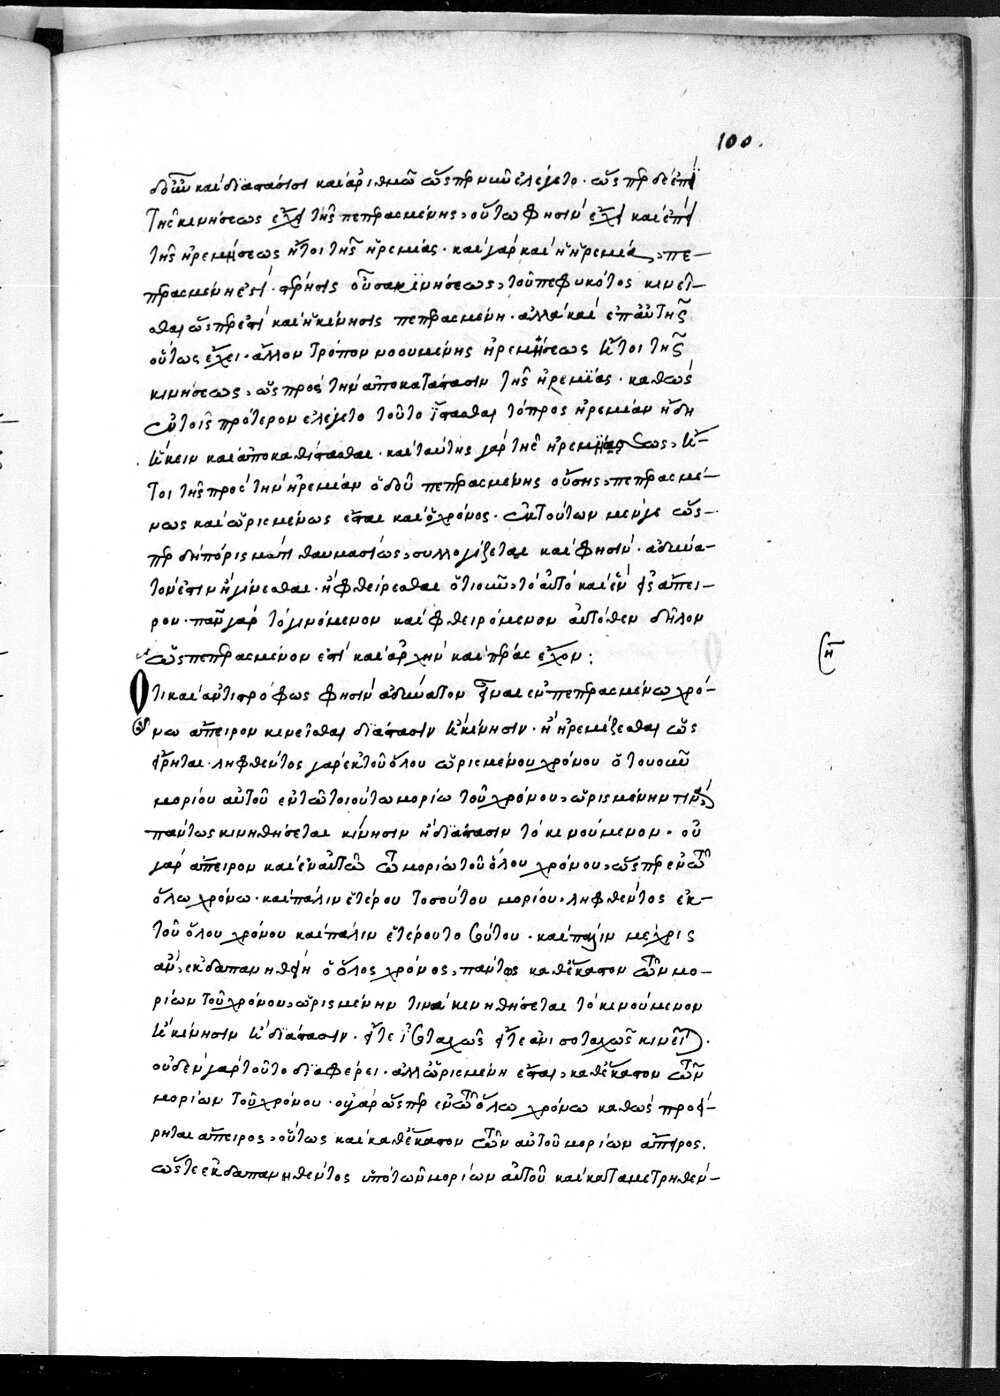 100.
καὶ διαστάσει καὶ ἀριθμῷ ὥσπερ νῦν ἐλέγετο · ὥσπερ δὲ ἐπὶ
τῆς κινήσεως ἔχει τῆς πεπερασμένης, οὕτω φησὶν ἔχει καὶ ἐπὶ
τῆς ἠρεμήσεως ἤτοι τῆς ἠρεμίας · καὶ γὰρ καὶ ἡ ἠρεμία, πε-
περασμένη ἐστί · στέρησις οὖσα κινήσεως, τοῦ πεφυκότος κινεῖ-
σθαι ὥσπερ ἐστὶ καὶ ἡ κίνησις πεπερασμένη · ἀλλὰ καὶ ἐπ αὐτῆς
οὕτως ἔχει · ἄλλον τρόπον νοουμένης ἠρεμήσεως ἤτοι τῆς
κινήσεως, ὡς πρὸς τὴν ἀποκατάστασιν τῆς ἠρεμίας · καθὼς
ἐν τοῖς πρότερον ἐλέγετο τοῦτο ἵστασθαι τὸ πρὸς ἠρεμίαν ἤδη
ἥκειν καὶ ἀποκαθίστασθαι · καὶ ταύτης γὰρ τῆς ἠρεμήσεως, ἤ-
τοι τῆς πρὸς τὴν ἠρεμίαν ὁδοῦ πεπερασμένης οὔσης, πεπερασμέ-
νως καὶ ὡρισμένως ἔσται καὶ ὁ χρόνος · ἐκ τούτων μέν γε ὥσ-
περ δὴ πόρισμά τι θαυμασίως, συλλογίζεται καὶ φησίν · ἀδύνα-
τον ἐστιν ἢ γίνεσθαι · ἢ φθείρεσθαι ὁτιοῦν, τὸ αὐτὸ καὶ ἓν εἰς ἄπει-
ρον · πᾶν γὰρ τὸ γινόμενον καὶ φθειρόμενον αὐτόθεν δῆλον
ὡς πεπερασμένον ἐστὶ καὶ ἀρχὴν καὶ πέρας ἔχον :
Ὅτι καὶ ἀντιστρόφως φησὶν ἀδύνατον εἶναι ἐν πεπερασμένῳ χρό-
νῳ ἄπειρον κινεῖσθαι διάστασιν ἢ κίνησιν · ἢ ἠρεμίζεσθαι ὡς
εἴρηται · ληφθέντος γὰρ ἐκ τοῦ ὅλου ὡρισμένου χρόνου ὁτουοῦν
μορίου αὐτοῦ ἐν τῷ τοιούτῳ μορίῳ τοῦ χρόνου, ὡρισμένην τινὰ
πάντως κινηθήσεται κίνησιν ἢ διάστασιν τὸ κινούμενον · οὐ
γὰρ ἄπειρον καὶ ἐν αὐτῷ τῷ μορίῳ τοῦ ὅλου χρόνου, ὥσπερ ἐν τῷ
ὅλῳ χρόνῳ · καὶ πάλιν ἑτέρου τοσούτου μορίου · ληφθέντος ἐκ
τοῦ ὅλου χρόνου καὶ πάλιν ἑτέρου τοσούτου · καὶ πάλιν μέχρις
ἂν, ἐκδαπανηθῇ ὁ ὅλος χρόνος, πάντως καθ ἕκαστον τῶν μο-
ρίων τοῦ χρόνου, ὡρισμένην τινὰ κινηθήσεται τὸ κινούμενον
ἢ κίνησιν ἢ διάστασιν · εἴτε ἰσοταχῶς εἴτε ἀνισοταχῶς κινεῖται ·
οὐδὲν γὰρ τοῦτο διαφέρει · ἀλλ ὡρισμένη ἔσται, καθ ἕκαστον τῶν
μορίων τοῦ χρόνου · οὐ γὰρ ὥσπερ ἐν τῷ ὅλῳ χρόνῳ καθὼς προεί-
ρηται ἄπειρος, οὕτως καὶ καθ ἕκαστον τῶν αὐτοῦ μορίων ἄπειρος.
ὥστε ἐκδαπανηθέντος ὑπὸ τῶν μορίων αὐτοῦ καὶ καταμετρηθέν-